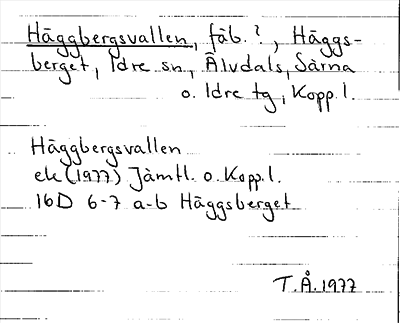 Häggbergsvallen, fäb.?, Häggs-
berget, Idre sn, Älvdals, Särna
o. Idre tg, Kopp.l.
Häggbergsvallen
ek (1977) Jämtl. o. Kopp.l.
16D 6-7 a-b Häggsberget
T.Å. 1977